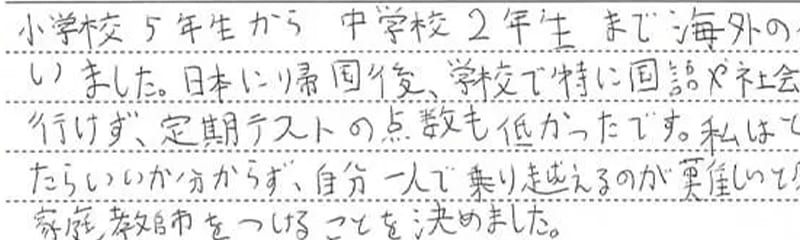 小学校5年生から 中学校2年生 まで海外の
いました。日本に帰国後、学校で特に国語や社会
行けず、定期テストの点数も低かったです。私は
たらいいか分からず、自分一人で乗り越えるのが難しいと
家庭教師をつけることを決めました。